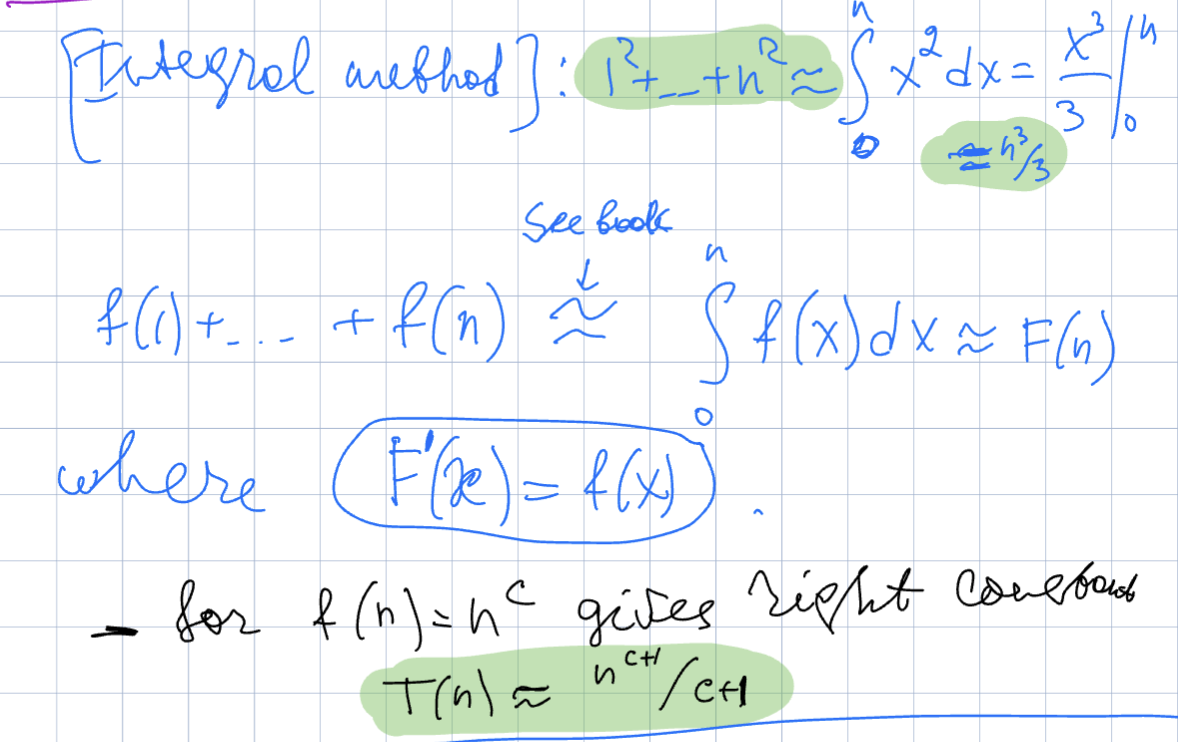 [Integral method]: 1²+...+n² ≈ ∫₀ⁿ x² dx = x³/3 |₀ⁿ
≈ n³/3
See book
↓
f(1)+... + f(n) ≈ ∫₀ⁿ f(x)dx ≈ F(n)
where F'(x) = f(x).
- for f(n)=n^c gives right constant
T(n) ≈ n^(c+1)/c+1